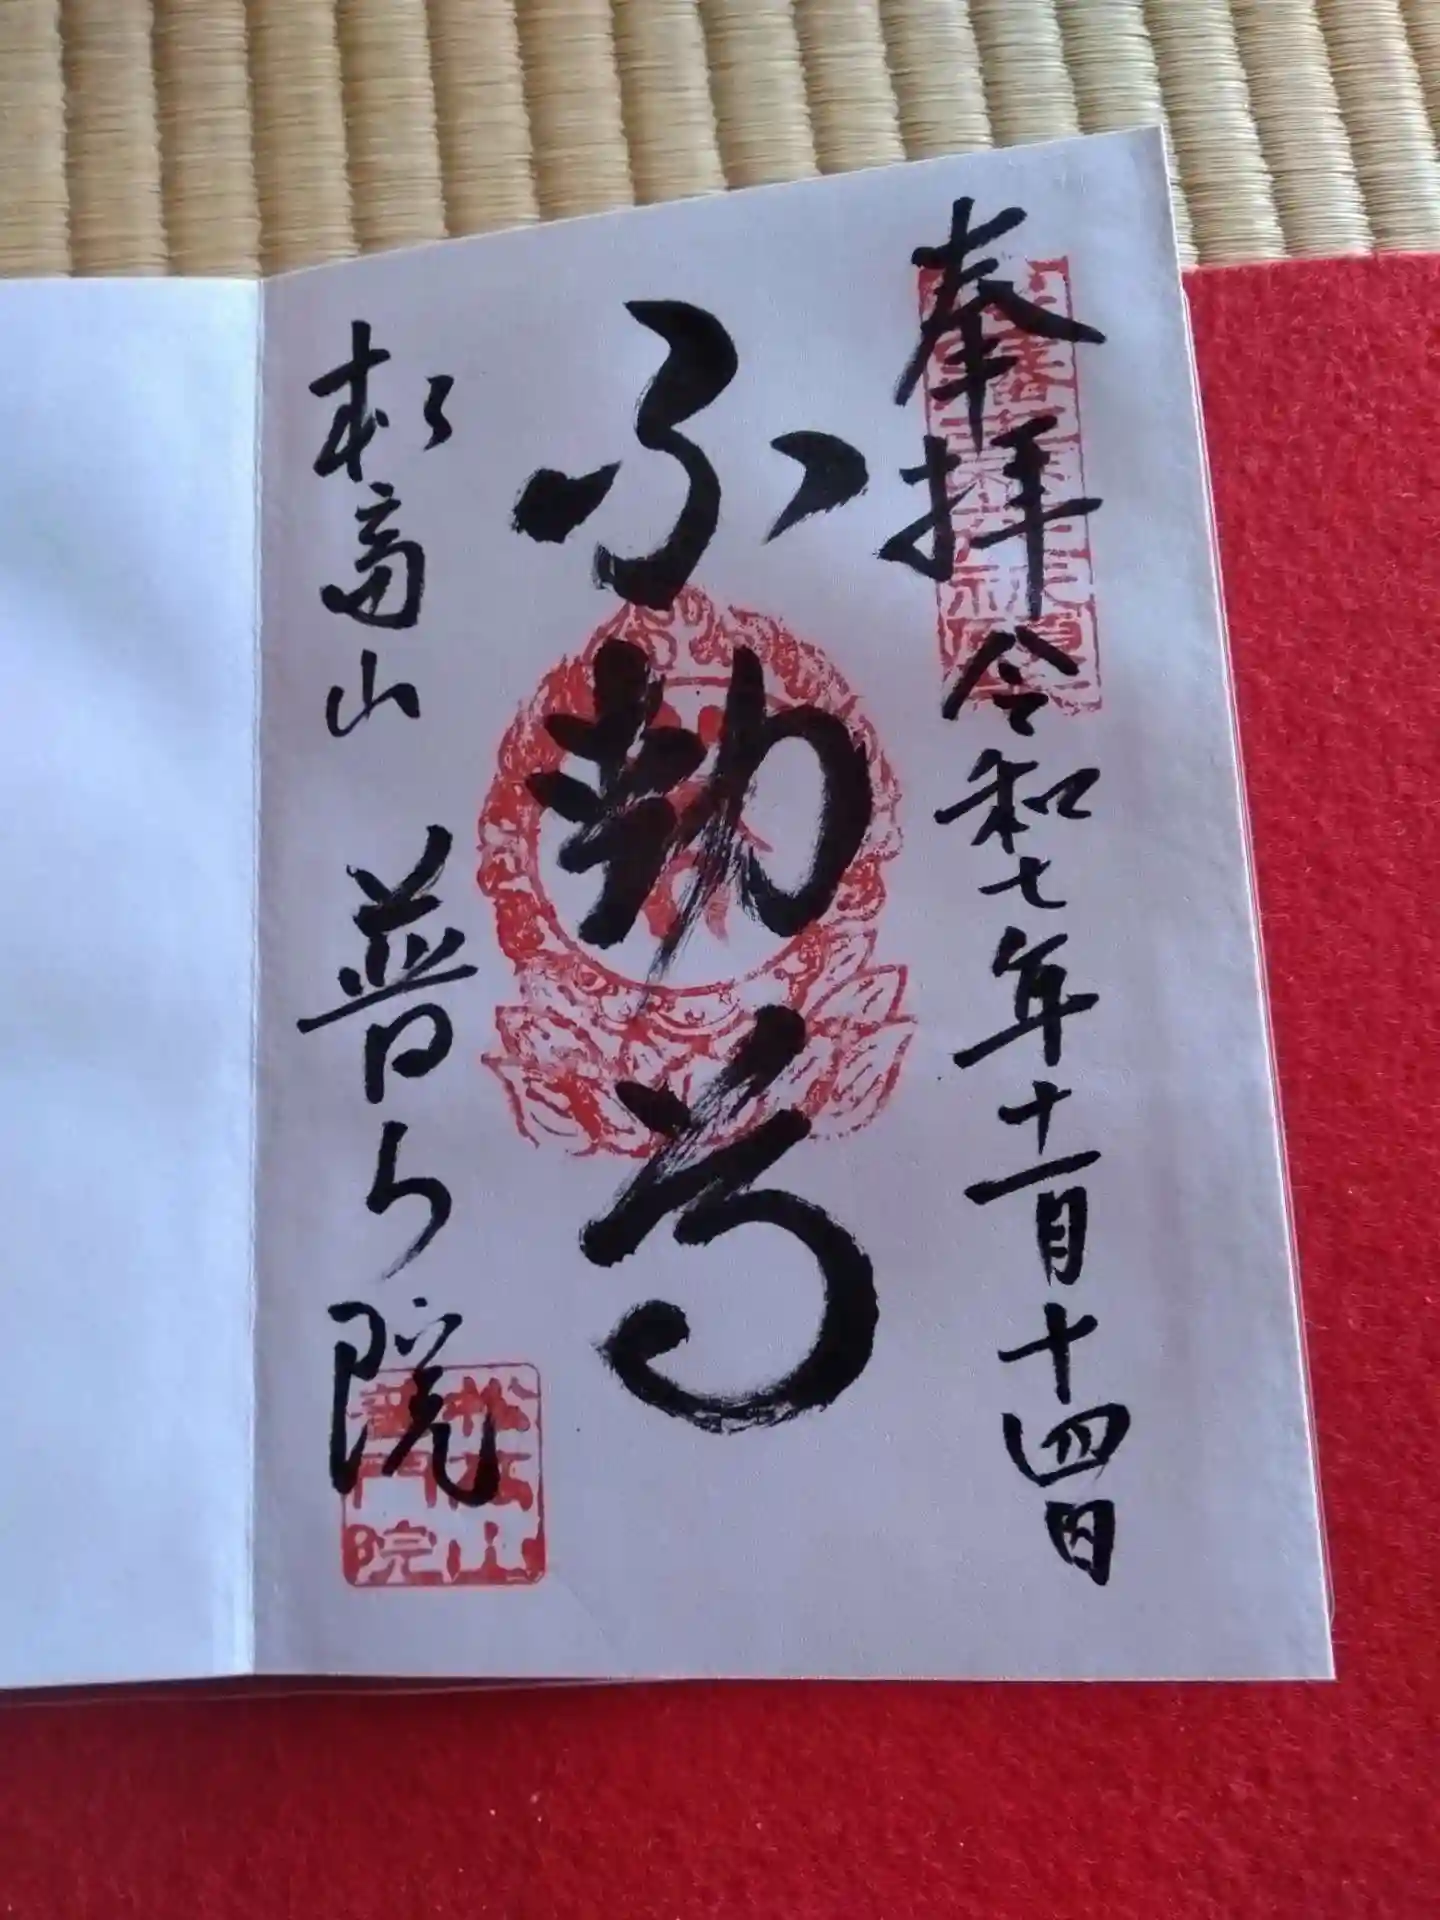 奉拝 令和七年十一月十四日
不動尊
松高山 普門院
山
普門院